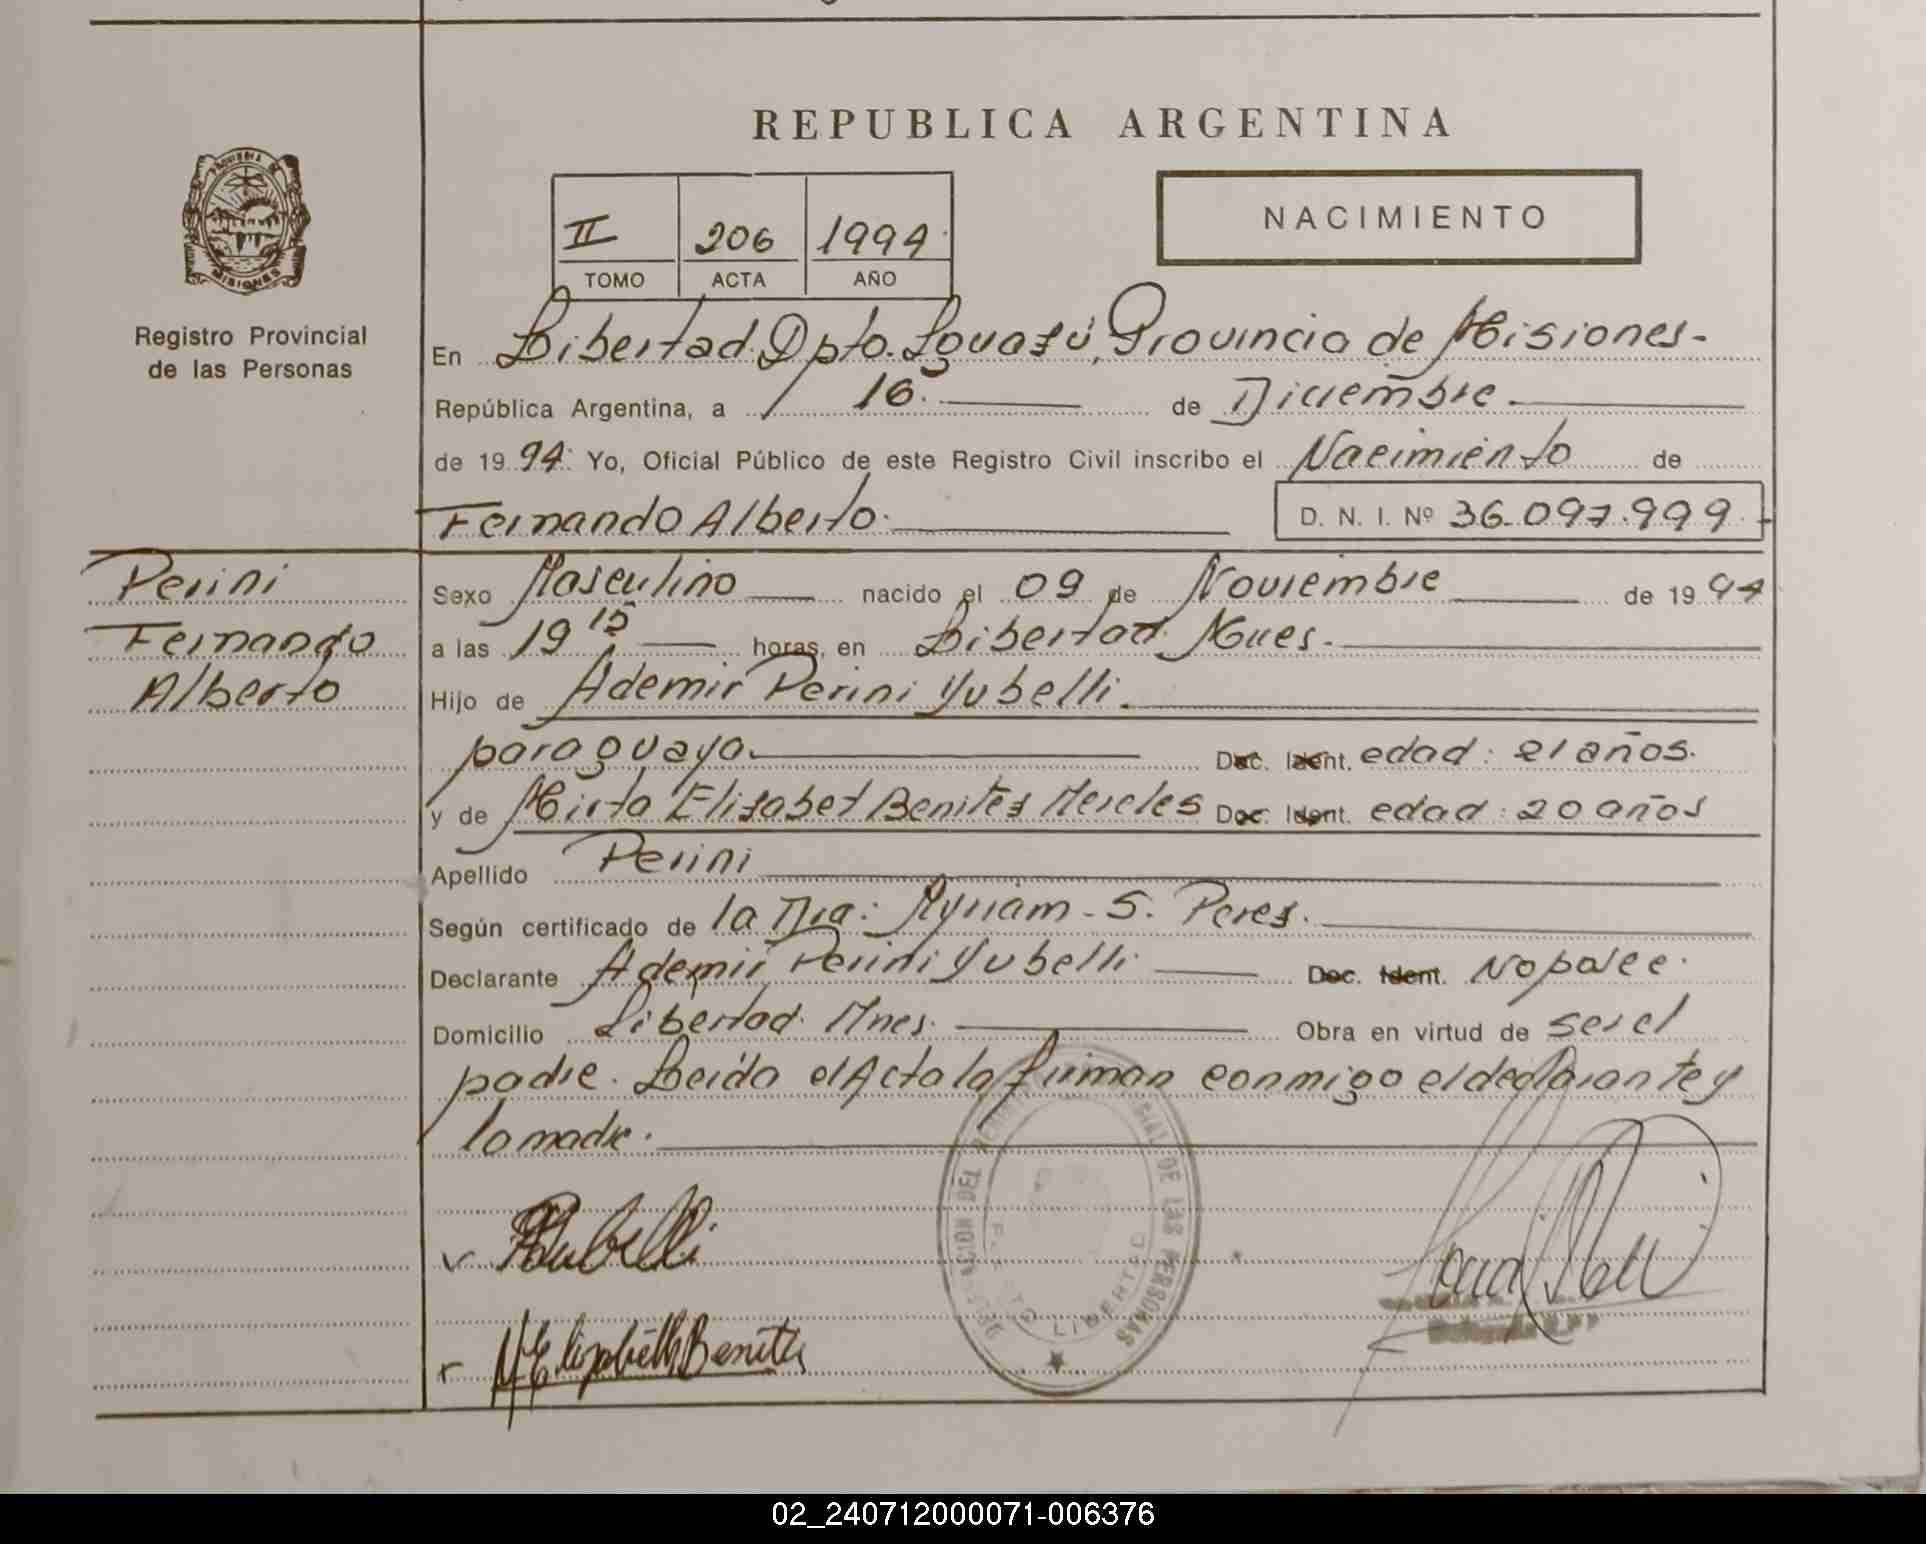 REPUBLICA ARGENTINA
NACIMIENTO
II 206 1994
TOMO ACTA AÑO
Registro Provincial
de las Personas
MISIONES
En Libertad. Dpto. Iguazú, Provincia de Misiones-
República Argentina, a 16. de Diciembre.
de 1994. Yo, Oficial Público de este Registro Civil inscribo el Nacimiento de
Fernando Alberto. D. N. I. Nº 36.097.999
Perini
Fernando
Alberto
Sexo Masculino nacido el 09 de Noviembre de 1994
a las 19 15 horas, en Libertad. Mnes.
Hijo de Ademir Perini Yubelli.
paraguaya. Doc. Ident. edad: 21 años.
y de Mirta Elizabet Benítez Mereles Doc. Ident. edad: 20 años
Apellido Perini
Según certificado de la Dra: Myriam - S. Perez.
Declarante Ademir Perini Yubelli. Doc. Ident. No posee.
Domicilio Libertad. Mnes. Obra en virtud de ser el
padre. Leída el Acta la firman conmigo el declarante y
la madre.
DELEGACION DEL REGISTRO PROVINCIAL DE LAS PERSONAS
LIBERTAD
02_240712000071-006376